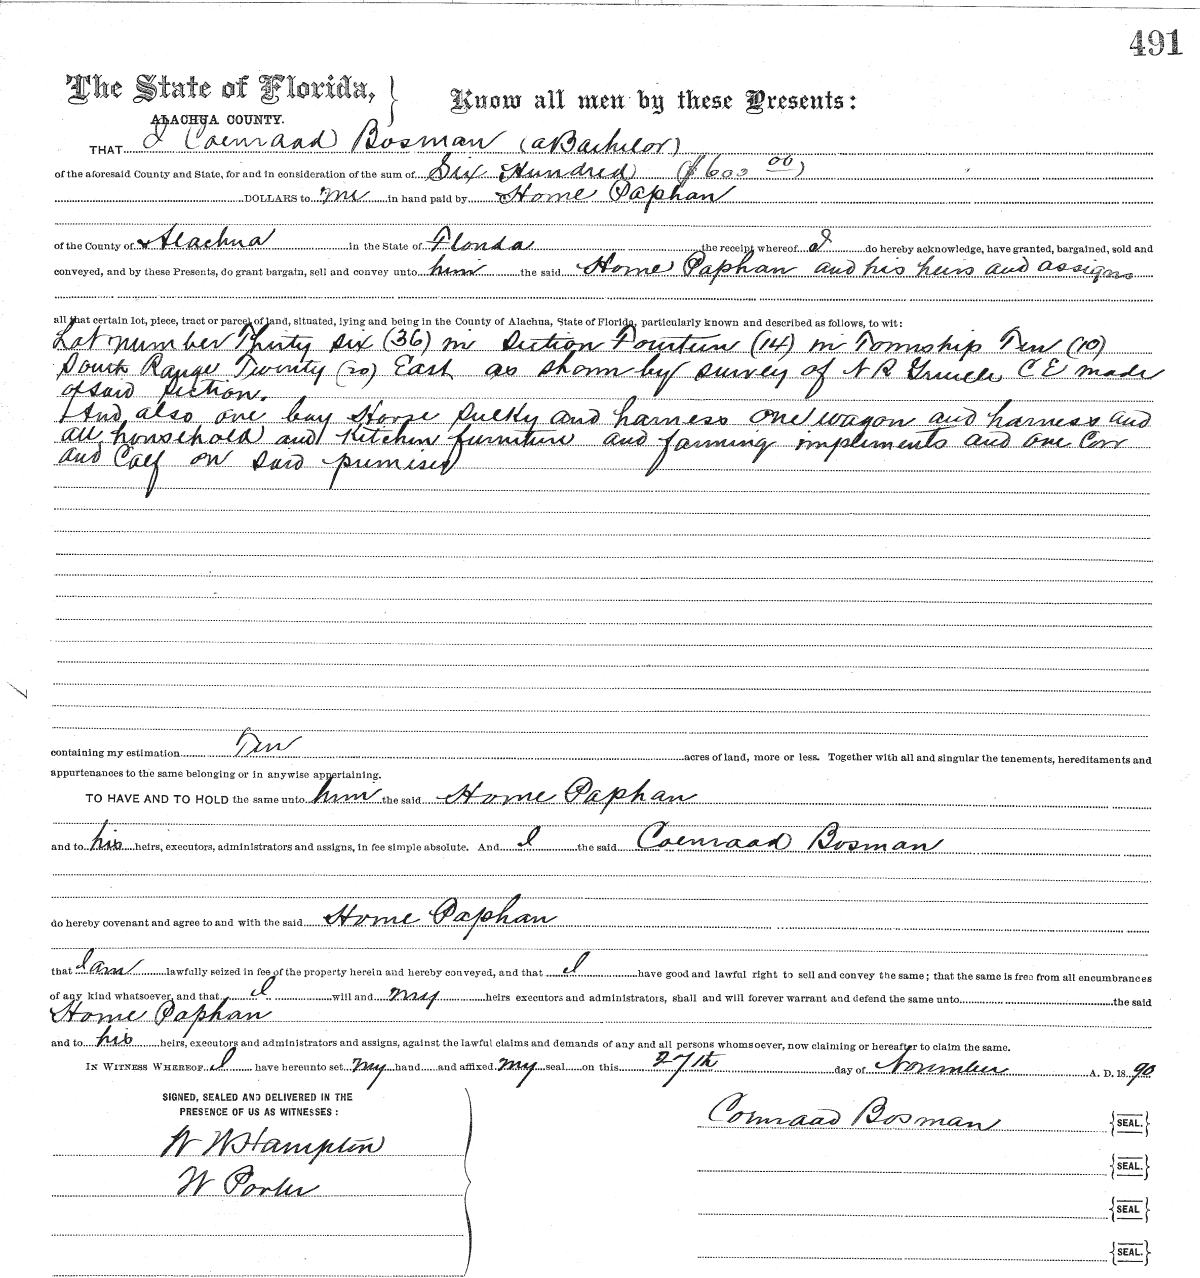 491
The State of Florida,
ALACHUA COUNTY.
Know all men by these Presents:
THAT I Coenraad Bosman (a Bachelor)
of the aforesaid County and State, for and in consideration of the sum of Six Hundred ($600 00)
DOLLARS to me in hand paid by Home Paphan
of the County of Alachua in the State of Florida the receipt whereof I do hereby acknowledge, have granted, bargained, sold and
conveyed, and by these Presents, do grant bargain, sell and convey unto him the said Home Paphan and his heirs and assigns
all that certain lot, piece, tract or parcel of land, situated, lying and being in the County of Alachua, State of Florida, particularly known and described as follows, to wit:
Lot number Thirty six (36) in Section Fourteen (14) in Township Ten (10)
South Range Twenty (20) East as shown by survey of N R Gruelle C E made
of said Section.
And also one bay Horse Sulky and harness one wagon and harness and
all household and Kitchen furniture and farming impliments and one Cow
and Calf on said premises
containing my estimation Ten acres of land, more or less. Together with all and singular the tenements, hereditaments and
appurtenances to the same belonging or in anywise appertaining.
TO HAVE AND TO HOLD the same unto him the said Home Paphan
and to his heirs, executors, administrators and assigns, in fee simple absolute. And I the said Coenraad Bosman
do hereby covenant and agree to and with the said Home Paphan
that I am lawfully seized in fee of the property herein and hereby conveyed, and that I have good and lawful right to sell and convey the same; that the same is free from all encumbrances
of any kind whatsoever, and that I will and my heirs executors and administrators, shall and will forever warrant and defend the same unto the said
Home Paphan
and to his heirs, executors and administrators and assigns, against the lawful claims and demands of any and all persons whomsoever, now claiming or hereafter to claim the same.
IN WITNESS WHEREOF I have hereunto set my hand and affixed my seal on this 27th day of November A. D. 18 90
SIGNED, SEALED AND DELIVERED IN THE
PRESENCE OF US AS WITNESSES:
W W Hampton
W Porter
Coenraad Bosman {SEAL.}
{SEAL.}
{SEAL}
{SEAL.}